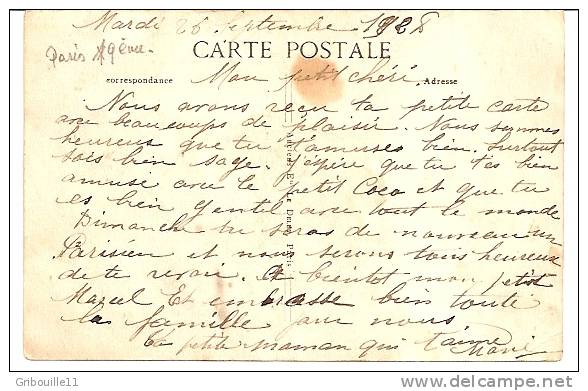 Mardi 26 Septembre 1928
CARTE POSTALE
Paris 19ème
Correspondance
Mon petit chéri
Adresse
Nous avons reçu ta petite carte
avec beaucoups de plaisir. Nous sommes
heureux que tu t'amuses bien. Surtout
sois bien sage. J'espère que tu t'es bien
amusé avec le petit Coco et que tu
es bien gentil avec tout le monde
Dimanche tu seras de nouveau un
Parisien et nous serons tous heureux
de te revoir. A bientot mon petit
Marcel Et embrasse bien toute
la famille pour nous.
Ta petite maman qui t'aime
Marie
Anciens Etts Le Duey Paris
Gribouille11
http://www.delcampe.net